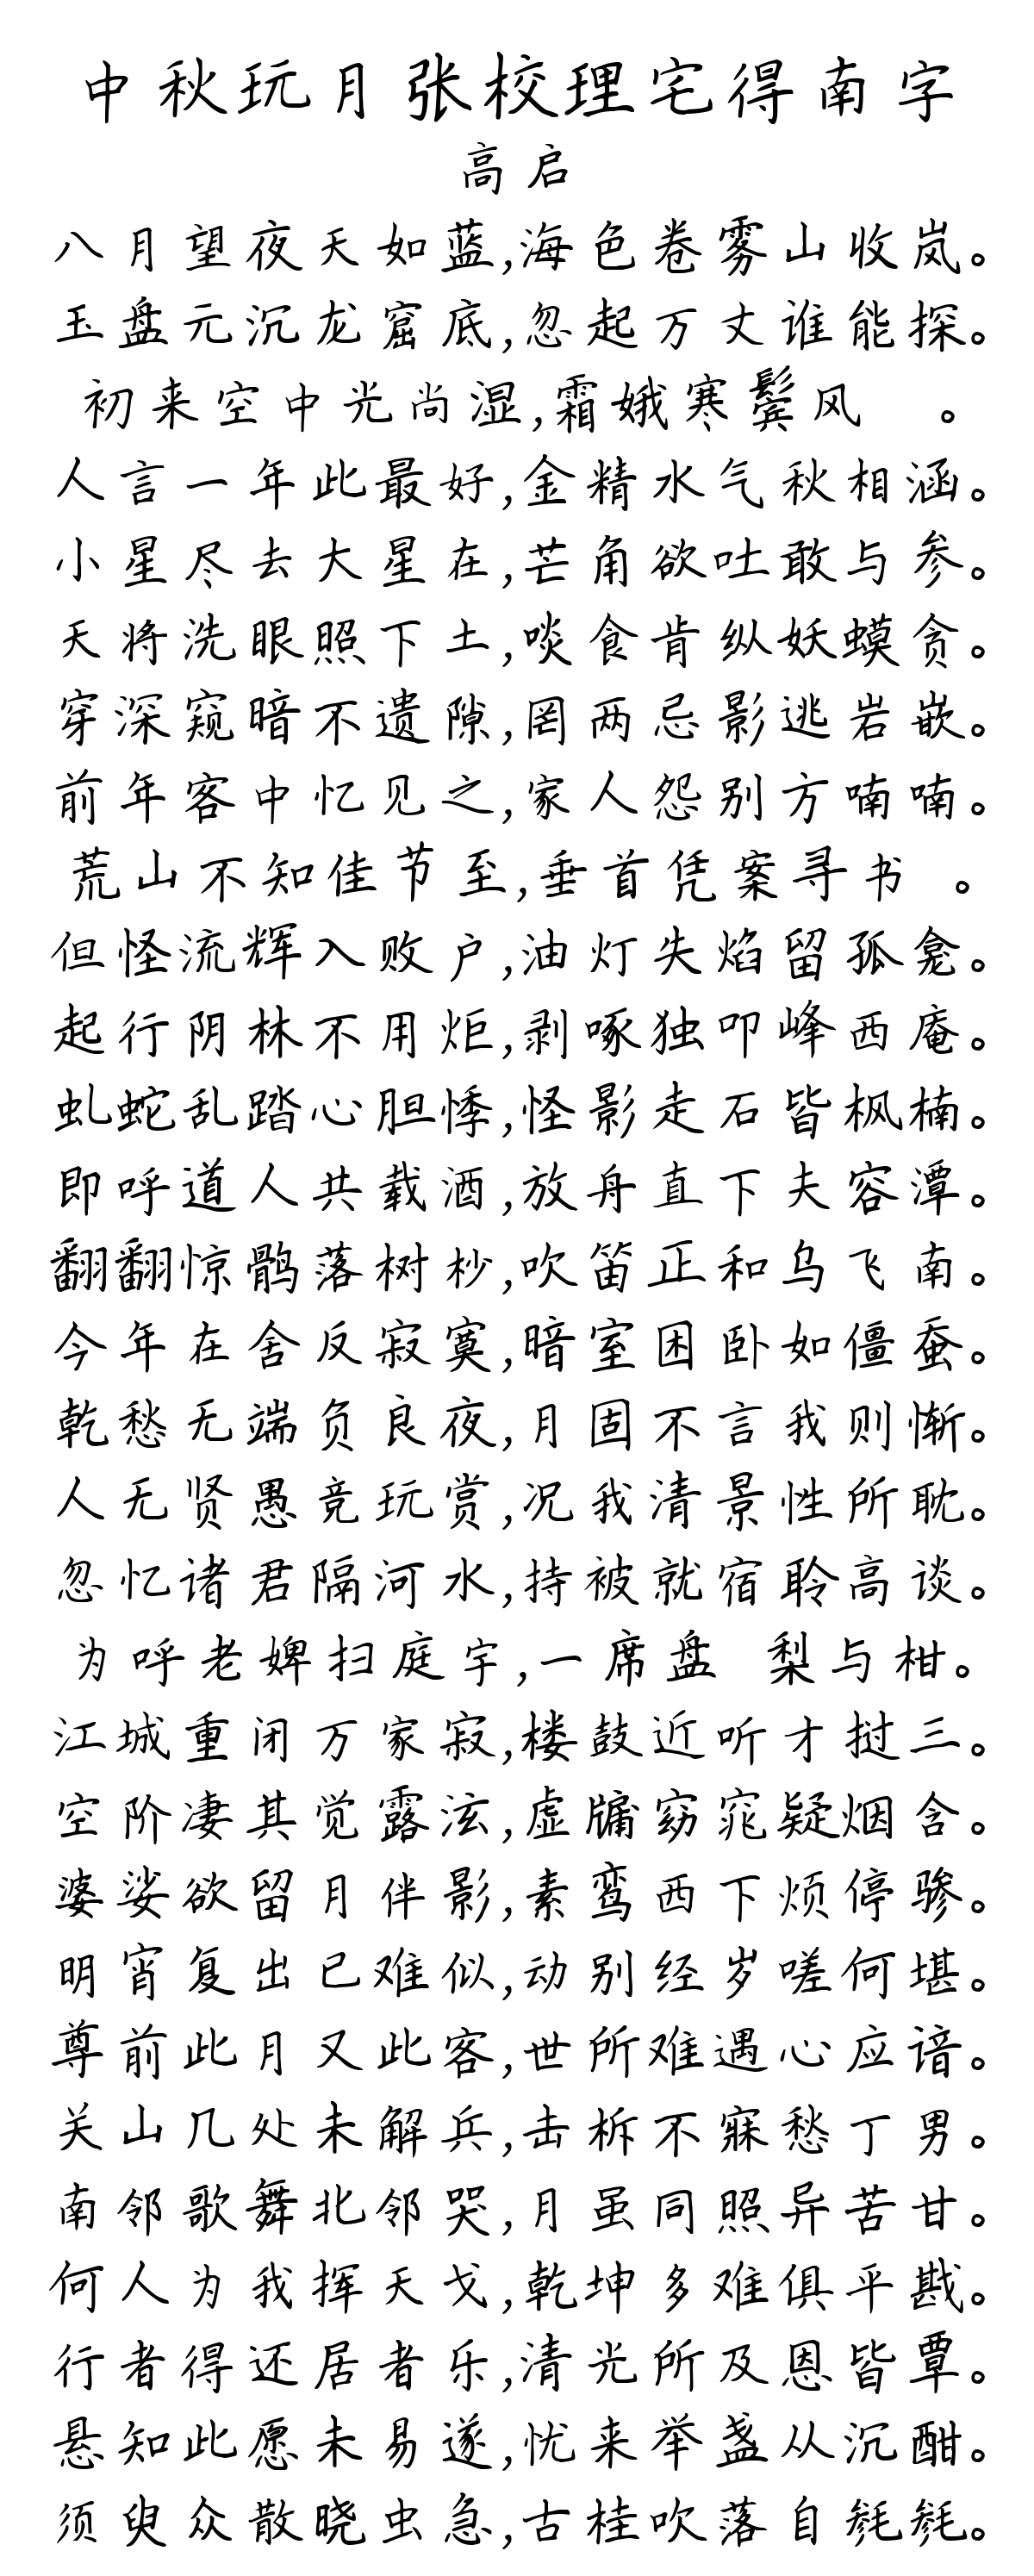 中秋玩月张校理宅得南字
高启
八月望夜天如蓝,海色卷雾山收岚。
玉盘元沉龙窟底,忽起万丈谁能探。
初来空中光尚湿,霜娥寒鬓风 。
人言一年此最好,金精水气秋相涵。
小星尽去大星在,芒角欲吐敢与参。
天将洗眼照下土,啖食肯纵妖蟆贪。
穿深窥暗不遗隙,罔两忌影逃岩嵌。
前年客中忆见之,家人怨别方喃喃。
荒山不知佳节至,垂首凭案寻书 。
但怪流辉入败户,油灯失焰留孤龛。
起行阴林不用炬,剥啄独叩峰西庵。
虬蛇乱踏心胆悸,怪影走石皆枫楠。
即呼道人共载酒,放舟直下夫容潭。
翻翻惊鹘落树杪,吹笛正和乌飞南。
今年在舍反寂寞,暗室困卧如僵蚕。
乾愁无端负良夜,月固不言我则惭。
人无贤愚竞玩赏,况我清景性所耽。
忽忆诸君隔河水,持被就宿聆高谈。
为呼老婢扫庭宇,一席盘 梨与柑。
江城重闭万家寂,楼鼓近听才挝三。
空阶凄其觉露泫,虚牗窈窕疑烟含。
婆娑欲留月伴影,素鸾西下烦停骖。
明宵复出已难似,动别经岁嗟何堪。
尊前此月又此客,世所难遇心应谙。
关山几处未解兵,击柝不寐愁丁男。
南邻歌舞北邻哭,月虽同照异苦甘。
何人为我挥天戈,乾坤多难俱平戡。
行者得还居者乐,清光所及恩皆覃。
悬知此愿未易遂,忧来举盏从沉酣。
须臾众散晓虫急,古桂吹落自毵毵。